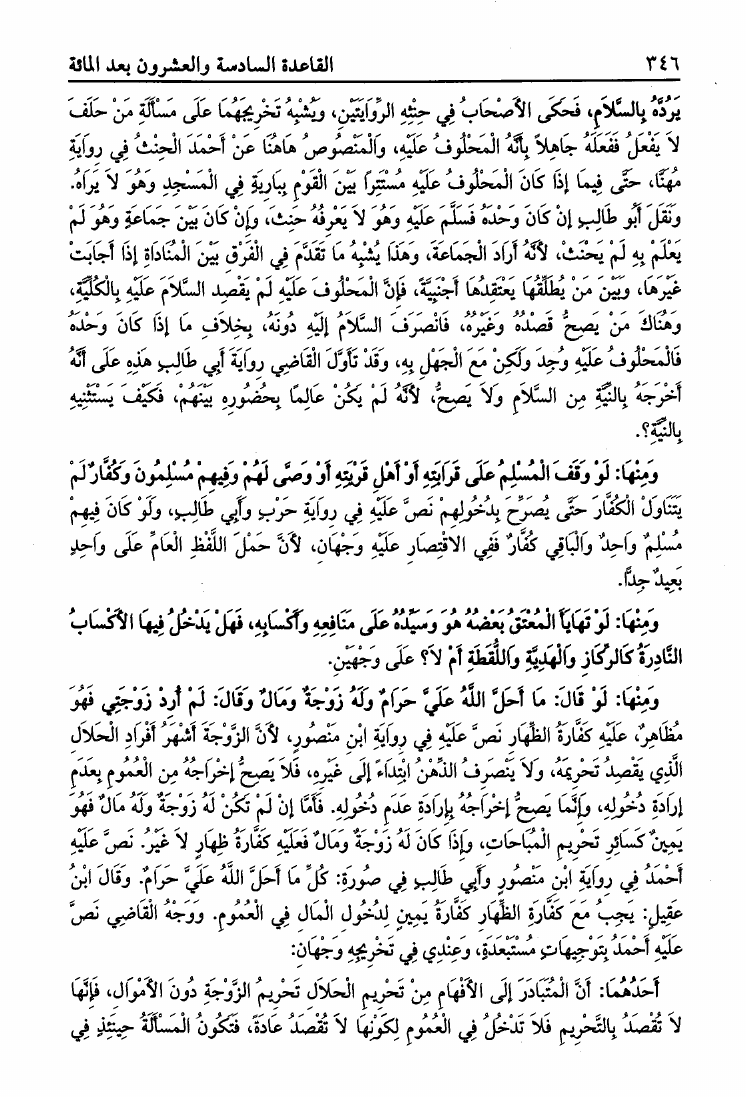 ٣٤٦ القاعدة السادسة والعشرون بعد المائة
يَرُدَّهُ بِالسَّلاَمِ، فَحَكَى الأَصْحَابُ فِي حِنْثِهِ الرِّوَايَتَيْنِ، وَيُشْبِهُ تَخْرِيجَهُمَا عَلَى مَسْأَلَةِ مَنْ حَلَفَ
لاَ يَفْعَلُ فَفَعَلَهُ جَاهِلاً بِأَنَّهُ الْمَحْلُوفُ عَلَيْهِ، وَالْمَنْصُوصُ هَاهُنَا عَنْ أَحْمَدَ الْحِنْثُ فِي رِوَايَةِ
مُهَنَّا، حَتَّى فِيمَا إِذَا كَانَ الْمَحْلُوفُ عَلَيْهِ مُسْتَتِرًا بَيْنَ الْقَوْمِ بِبَارِيَةٍ فِي الْمَسْجِدِ وَهُوَ لاَ يَرَاهُ.
وَنَقَلَ أَبُو طَالِبٍ إِنْ كَانَ وَحْدَهُ فَسَلَّمَ عَلَيْهِ وَهُوَ لاَ يَعْرِفُهُ حَنِثَ، وَإِنْ كَانَ بَيْنَ جَمَاعَةٍ وَهُوَ لَمْ
يَعْلَمْ بِهِ لَمْ يَحْنَثْ، لأَنَّهُ أَرَادَ الْجَمَاعَةَ، وَهَذَا يُشْبِهُ مَا تَقَدَّمَ فِي الْفَرْقِ بَيْنَ الْمُنَادَاةِ إِذَا أَجَابَتْ
غَيْرَهَا، وَبَيْنَ مَنْ يُطَلِّقُهَا يَعْتَقِدُهَا أَجْنَبِيَّةً، فَإِنَّ الْمَحْلُوفَ عَلَيْهِ لَمْ يَقْصِدِ السَّلاَمَ عَلَيْهِ بِالْكُلِّيَّةِ،
وَهُنَاكَ مَنْ يَصِحُّ قَصْدُهُ وَغَيْرُهُ، فَانْصَرَفَ السَّلاَمُ إِلَيْهِ دُونَهُ، بِخِلاَفِ مَا إِذَا كَانَ وَحْدَهُ
فَالْمَحْلُوفُ عَلَيْهِ وُجِدَ وَلَكِنْ مَعَ الْجَهْلِ بِهِ، وَقَدْ تَأَوَّلَ الْقَاضِي رِوَايَةَ أَبِي طَالِبٍ هَذِهِ عَلَى أَنَّهُ
أَخْرَجَهُ بِالنِّيَّةِ مِنَ السَّلاَمِ وَلاَ يَصِحُّ، لأَنَّهُ لَمْ يَكُنْ عَالِمًا بِحُضُورِهِ بَيْنَهُمْ، فَكَيْفَ يَسْتَثْنِيهِ
بِالنِّيَّةِ؟.
وَمِنْهَا: لَوْ وَقَفَ الْمُسْلِمُ عَلَى قَرَابَتِهِ أَوْ أَهْلِ قَرْيَتِهِ أَوْ وَصَّى لَهُمْ وَفِيهِمْ مُسْلِمُونَ وَكُفَّارٌ لَمْ
يَتَنَاوَلْ الْكُفَّارَ حَتَّى يُصَرِّحَ بِدُخُولِهِمْ نَصَّ عَلَيْهِ فِي رِوَايَةِ حَرْبٍ وَأَبِي طَالِبٍ، وَلَوْ كَانَ فِيهِمْ
مُسْلِمٌ وَاحِدٌ وَالْبَاقِي كُفَّارٌ فَفِي الاقْتِصَارِ عَلَيْهِ وَجْهَانِ، لأَنَّ حَمْلَ اللَّفْظِ الْعَامِّ عَلَى وَاحِدٍ
بَعِيدٌ جِدًّا.
وَمِنْهَا: لَوْ تَهَايَأَ الْمُعْتَقُ بَعْضُهُ هُوَ وَسَيِّدُهُ عَلَى مَنَافِعِهِ وَأَكْسَابِهِ، فَهَلْ يَدْخُلُ فِيهَا الأَكْسَابُ
النَّادِرَةُ كَالرِّكَازِ وَالْهَدِيَّةِ وَاللُّقَطَةِ أَمْ لاَ؟ عَلَى وَجْهَيْنِ.
وَمِنْهَا: لَوْ قَالَ: مَا أَحَلَّ اللَّهُ عَلَيَّ حَرَامٌ وَلَهُ زَوْجَةٌ وَمَالٌ وَقَالَ: لَمْ أُرِدْ زَوْجَتِي فَهُوَ
مُظَاهِرٌ، عَلَيْهِ كَفَّارَةُ الظِّهَارِ نَصَّ عَلَيْهِ فِي رِوَايَةِ ابْنِ مَنْصُورٍ، لأَنَّ الزَّوْجَةَ أَشْهَرُ أَفْرَادِ الْحَلاَلِ
الَّذِي يَقْصِدُ تَحْرِيمَهُ، وَلاَ يَنْصَرِفُ الذِّهْنُ ابْتِدَاءً إِلَى غَيْرِهِ، فَلاَ يَصِحُّ إِخْرَاجُهُ مِنَ الْعُمُومِ بِعَدَمِ
إِرَادَةِ دُخُولِهِ، وَإِنَّمَا يَصِحُّ إِخْرَاجُهُ بِإِرَادَةِ عَدَمِ دُخُولِهِ. فَأَمَّا إِنْ لَمْ تَكُنْ لَهُ زَوْجَةٌ وَلَهُ مَالٌ فَهُوَ
يَمِينٌ كَسَائِرِ تَحْرِيمِ الْمُبَاحَاتِ، وَإِذَا كَانَ لَهُ زَوْجَةٌ وَمَالٌ فَعَلَيْهِ كَفَّارَةُ ظِهَارٍ لاَ غَيْرُ. نَصَّ عَلَيْهِ
أَحْمَدُ فِي رِوَايَةِ ابْنِ مَنْصُورٍ وَأَبِي طَالِبٍ فِي صُورَةِ: كُلِّ مَا أَحَلَّ اللَّهُ عَلَيَّ حَرَامٌ. وَقَالَ ابْنُ
عَقِيلٍ: يَجِبُ مَعَ كَفَّارَةِ الظِّهَارِ كَفَّارَةُ يَمِينٍ لِدُخُولِ الْمَالِ فِي الْعُمُومِ. وَوَجْهُ الْقَاضِي نَصَّ
عَلَيْهِ أَحْمَدُ بِتَوْجِيهَاتٍ مُسْتَبْعَدَةٍ، وَعِنْدِي فِي تَخْرِيجِهِ وَجْهَانِ:
أَحَدُهُمَا: أَنَّ الْمُتَبَادَرَ إِلَى الأَفْهَامِ مِنْ تَحْرِيمِ الْحَلاَلِ تَحْرِيمُ الزَّوْجَةِ دُونَ الأَمْوَالِ، فَإِنَّهَا
لاَ تُقْصَدُ بِالتَّحْرِيمِ فَلاَ تَدْخُلُ فِي الْعُمُومِ لِكَوْنِهَا لاَ تُقْصَدُ عَادَةً، فَتَكُونُ الْمَسْأَلَةُ حِينَئِذٍ فِي